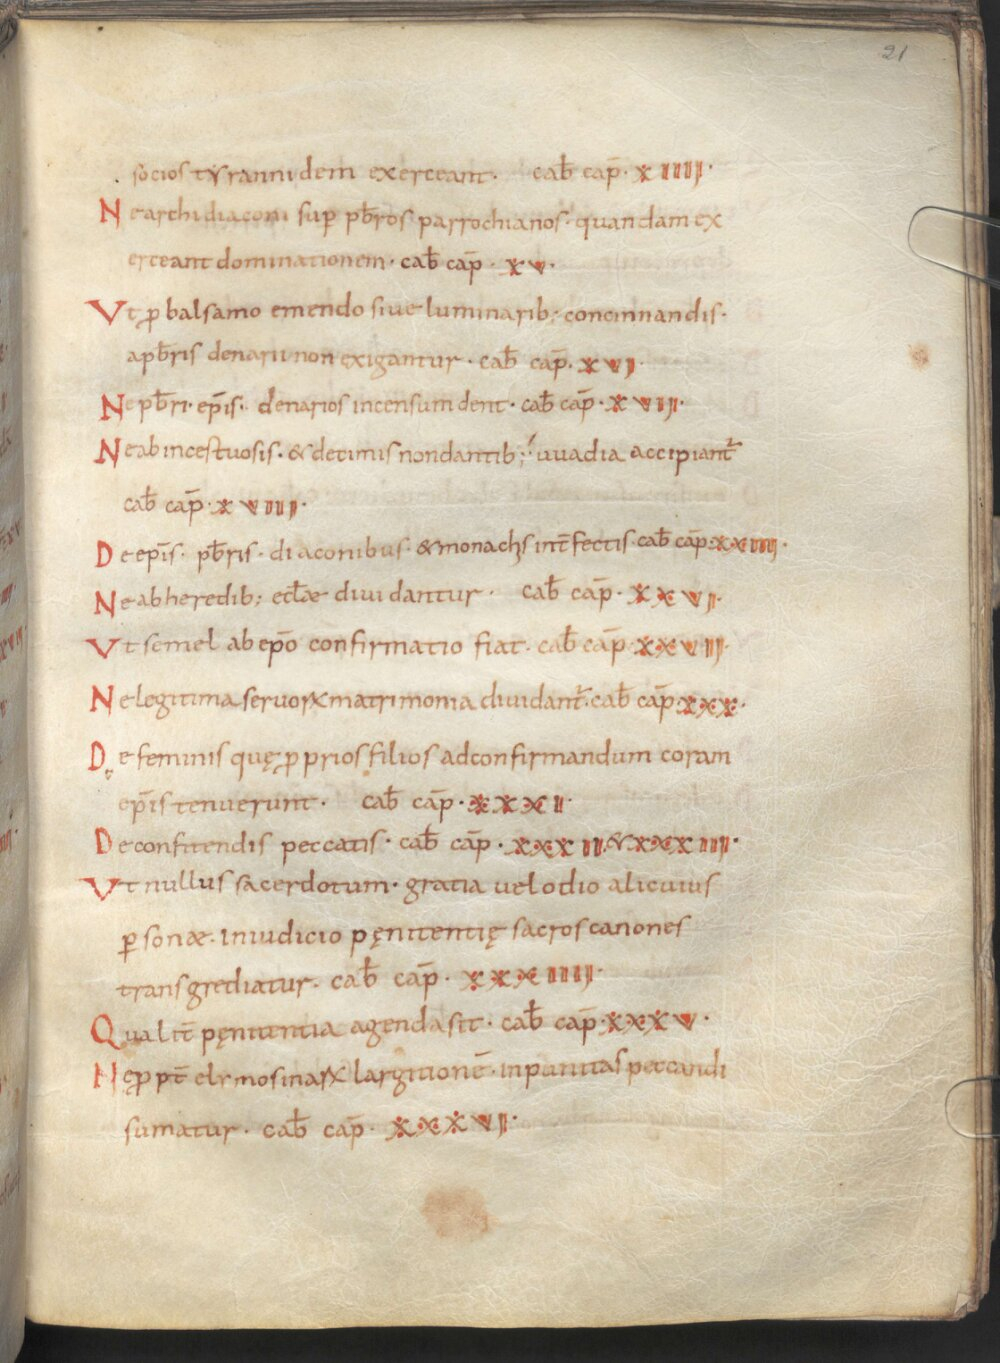 21
socios tyrannidem exerceant. cab̄ cap̄. XIIII.
Ne archidiaconi sup̱ pb̄ros parrochianos. quandam ex
erceant dominationem. cab̄ cap̄. XV.
Vt ꝓ balsamo emendo siue luminarib; concinnandis.
a pb̄ris denarii non exigantur. cab̄ cap̄. XVI.
Ne pb̄ri. ep̄is. denarios in censum dent. cab̄ cap̄. XVII.
Ne ab incestuosis. & decimis non dantib; uuadia accipiant᷑
cab̄ cap̄. XVIII.
De ep̄is. pb̄ris. diaconibus. & monachis int̄fectis. cab̄ cap̄. XXIIII.
Ne ab heredib; eccl̄ae diuidantur. cab̄ cap̄. XXVI.
Vt semel ab ep̄o confirmatio fiat. cab̄ cap̄. XXVII.
Ne legitima seruoꝝ matrimonia diuidant᷑. cab̄ cap̄. XXX.
De feminis quę ꝓprios filios ad confirmandum coram
ep̄is tenuerunt. cab̄ cap̄. XXXI.
De confitendis peccatis. cab̄ cap̄. XXXII. & XXXIII.
Vt nullus sacerdotum. gratia uel odio alicuius
ꝑsonae. in iudicio pęnitentię sacros canones
transgrediatur. cab̄ cap̄. XXXIIII.
Qualit̄ pęnitentia agenda sit. cab̄ cap̄. XXXV.
Ne ꝓpt̄ elymosinaꝝ largitionē. inpunitas peccandi
sumatur. cab̄ cap̄. XXXVI.